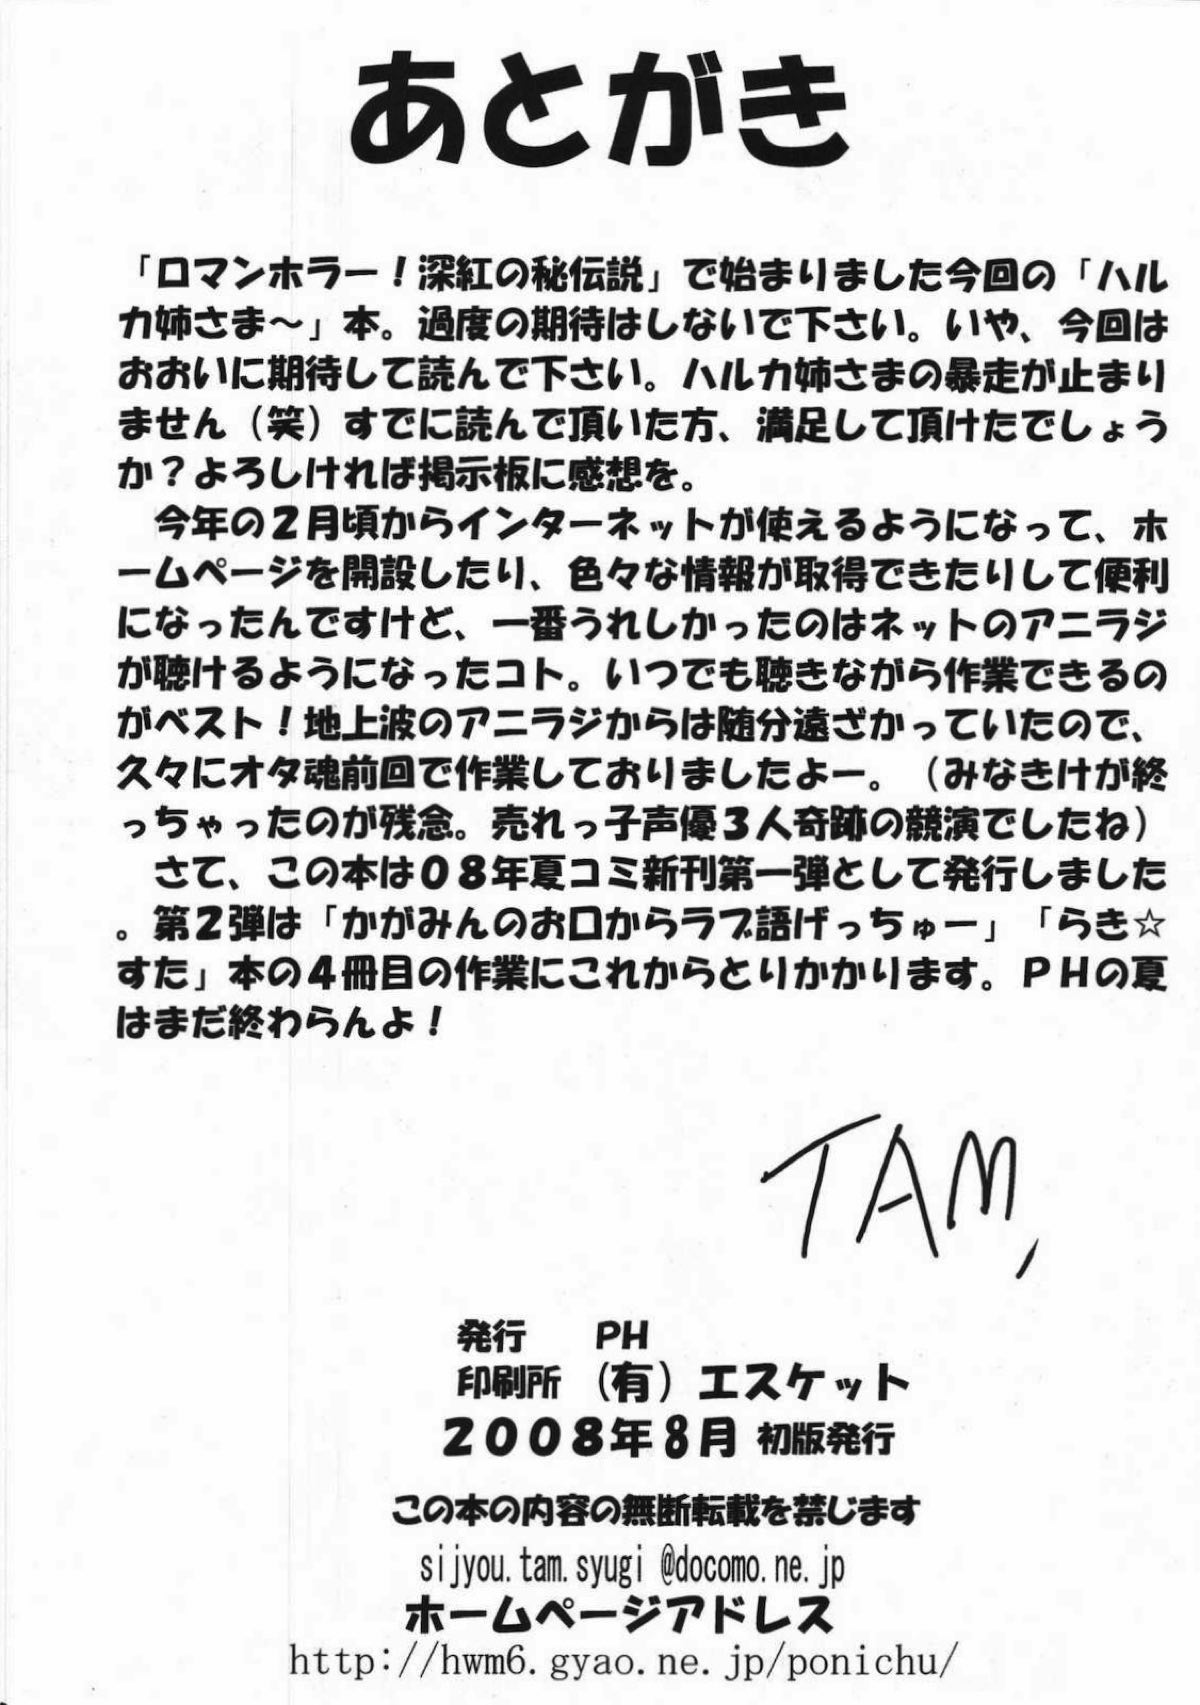 あとがき
「ロマンホラー！深紅の秘伝説」で始まりました今回の「ハル
カ姉さま～」本。過度の期待はしないで下さい。いや、今回は
おおいに期待して読んで下さい。ハルカ姉さまの暴走が止まり
ません（笑）すでに読んで頂いた方、満足して頂けたでしょう
か？よろしければ掲示板に感想を。
今年の２月頃からインターネットが使えるようになって、ホ
ームページを開設したり、色々な情報が取得できたりして便利
になったんですけど、一番うれしかったのはネットのアニラジ
が聴けるようになったコト。いつでも聴きながら作業できるの
がベスト！地上波のアニラジからは随分遠ざかっていたので、
久々にオタ魂前回で作業しておりましたよー。（みなきけが終
っちゃったのが残念。売れっ子声優３人奇跡の競演でしたね）
さて、この本は０８年夏コミ新刊第一弾として発行しました
。第２弾は「かがみんのお口からラブ語げっちゅー」「らき☆
すた」本の４冊目の作業にこれからとりかかります。ＰＨの夏
はまだ終わらんよ！
TAM,
発行　　PH
印刷所　（有）エスケット
２００８年８月 初版発行
この本の内容の無断転載を禁じます
sijyou.tam.syugi@docomo.ne.jp
ホームページアドレス
http://hwm6.gyao.ne.jp/ponichu/